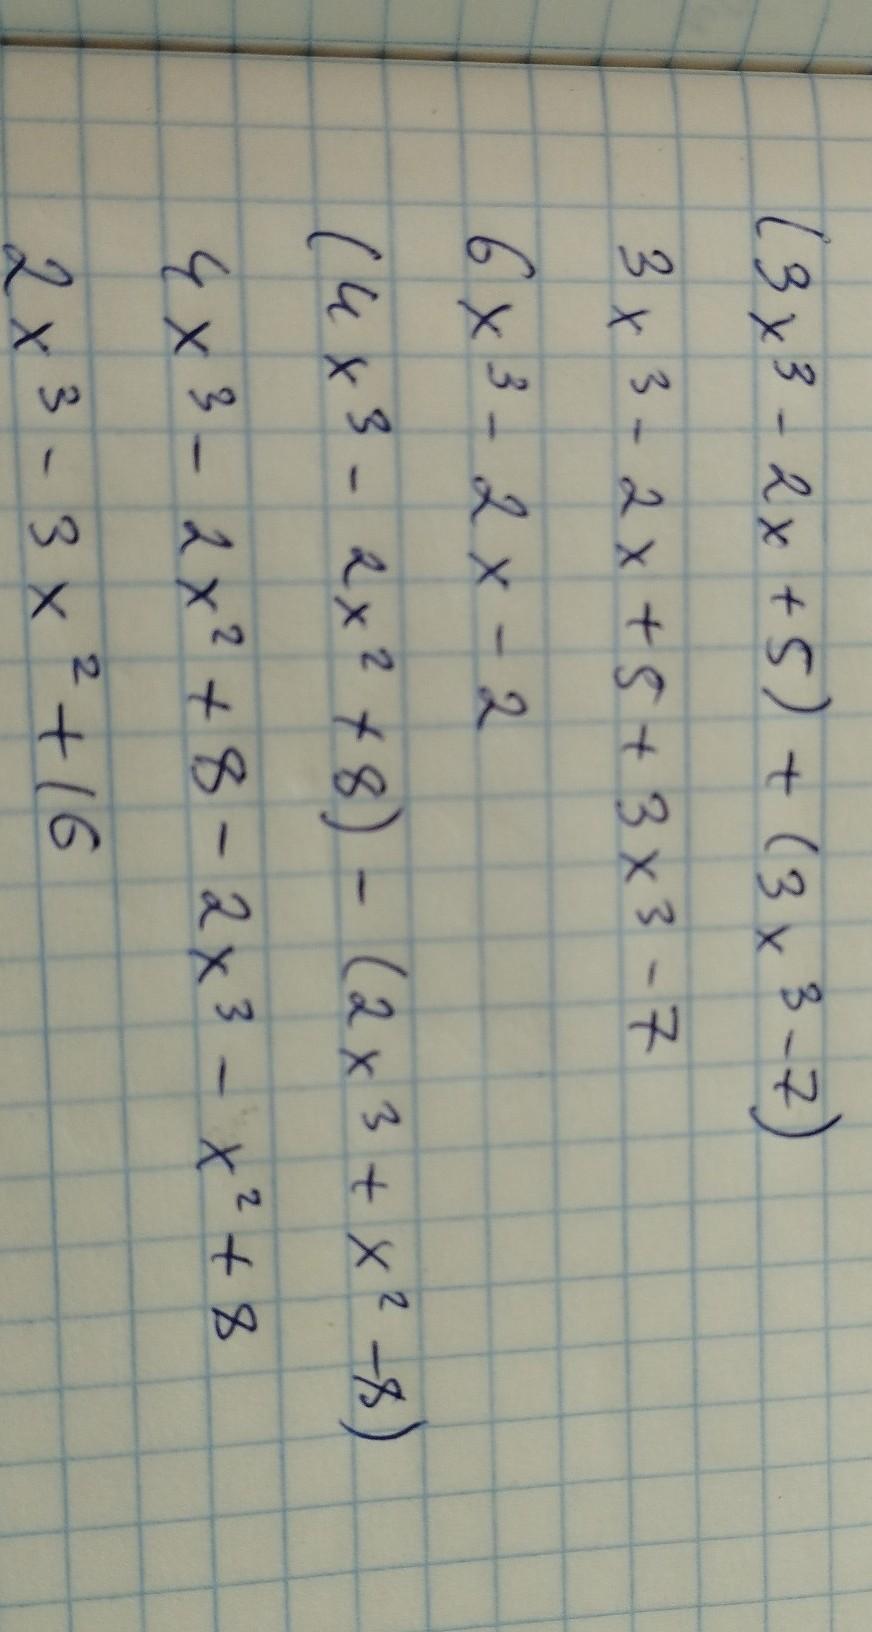 (3x³ - 2x + 5) + (3x³ - 7)
3x³ - 2x + 5 + 3x³ - 7
6x³ - 2x - 2
(4x³ - 2x² + 8) - (2x³ + x² - 8)
4x³ - 2x² + 8 - 2x³ - x² + 8
2x³ - 3x² + 16